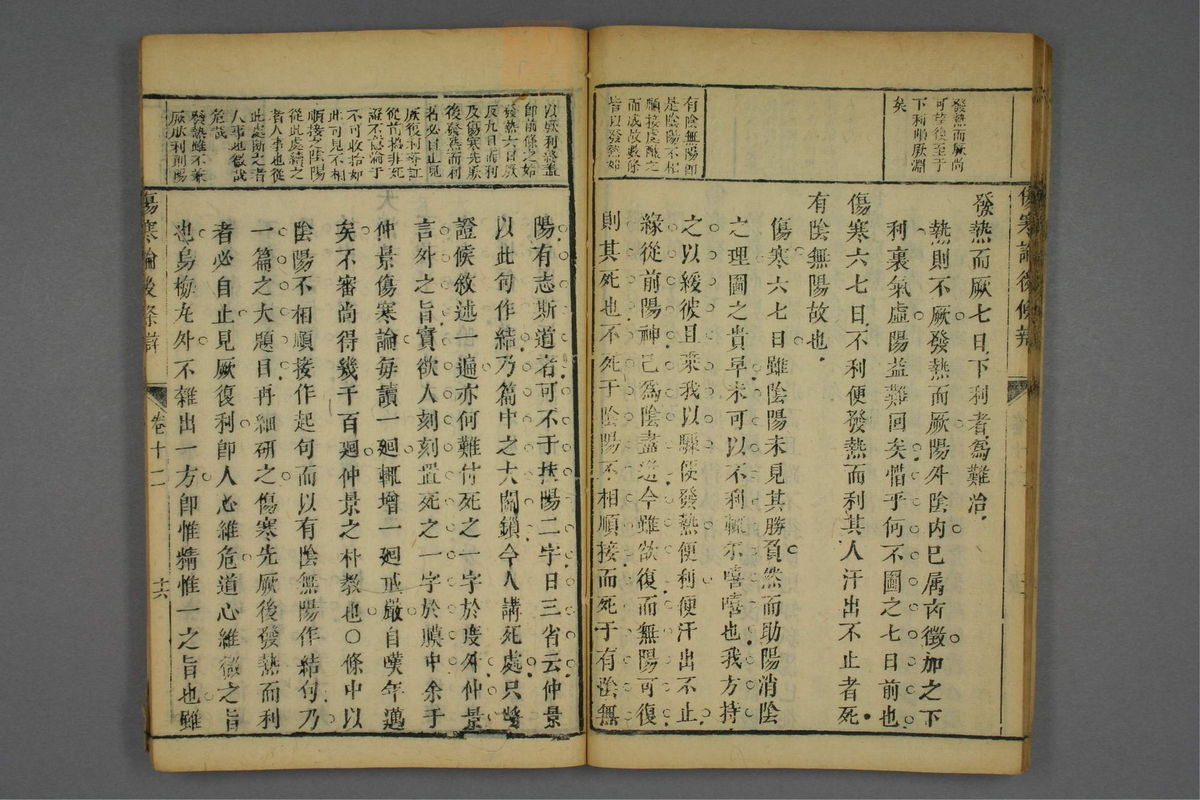 發熱而厥尚
可望後至于
下利則厥淵
矣
有陰無陽即
是陰陽不相
順接處醸之
而成故數條
皆以發熱始
傷寒論後條辨
發熱而厥七日下利者為難治
熱則不厥發熱而厥陽外陰内已属否徵加之下
利裏氣虛陽益難囘矣惜乎何不圖之七日前也
傷寒六七日不利便發熱而利其人汗出不止者死
有陰無陽故也
傷寒六七日雖陰陽未見其勝負然而助陽消陰
之理圖之貴早未可以不利輒示嘻嘻也我方持
之以緩彼且乘我以驟便發熱便利便汗出不止
緣從前陽神已為陰盡這今雖欲復而無陽可復
則其死也不死于陰陽不相順接而死于有陰無
以厥利發熱
即前條之始
發熱六日厥
反九日而利
及傷寒先厥
後發熱而利
者必自止見
厥復利等証
從前撟非死
證不得淪于
不可收拾如
此可見不相
順接之陰陽
從此處續之
者人事也從
此處斷之者
人事也微哉
危哉
發熱雖不兼
厥厥利則陽
陽有志斯道者可不于扶陽二字日三省云仲景
以此句作結乃篇中之大關鎖今人講死處只將
證候敘述一遍亦何難付死之一字於度外仲景
言外之旨實欲人刻刻置死之一字於膜中余于
仲景傷寒論每讀一廻輒增一廻戒嚴自嘆年邁
矣不審尚得幾千百廻仲景之朴教也○條中以
陰陽不相順接作起句而以有陰無陽作結句乃
一篇之大題目再細研之傷寒先厥後發熱而利
者必自止見厥復利即人心維危道心維微之旨
也烏梅丸外不雜出一方即惟精惟一之旨也雖
傷寒論後條辨
卷十二
十六